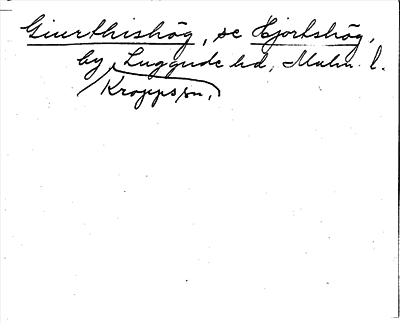 Giurthishög, se Hjortshög,
by, Luggude hd, Malm. l.
(Kropps sn.)